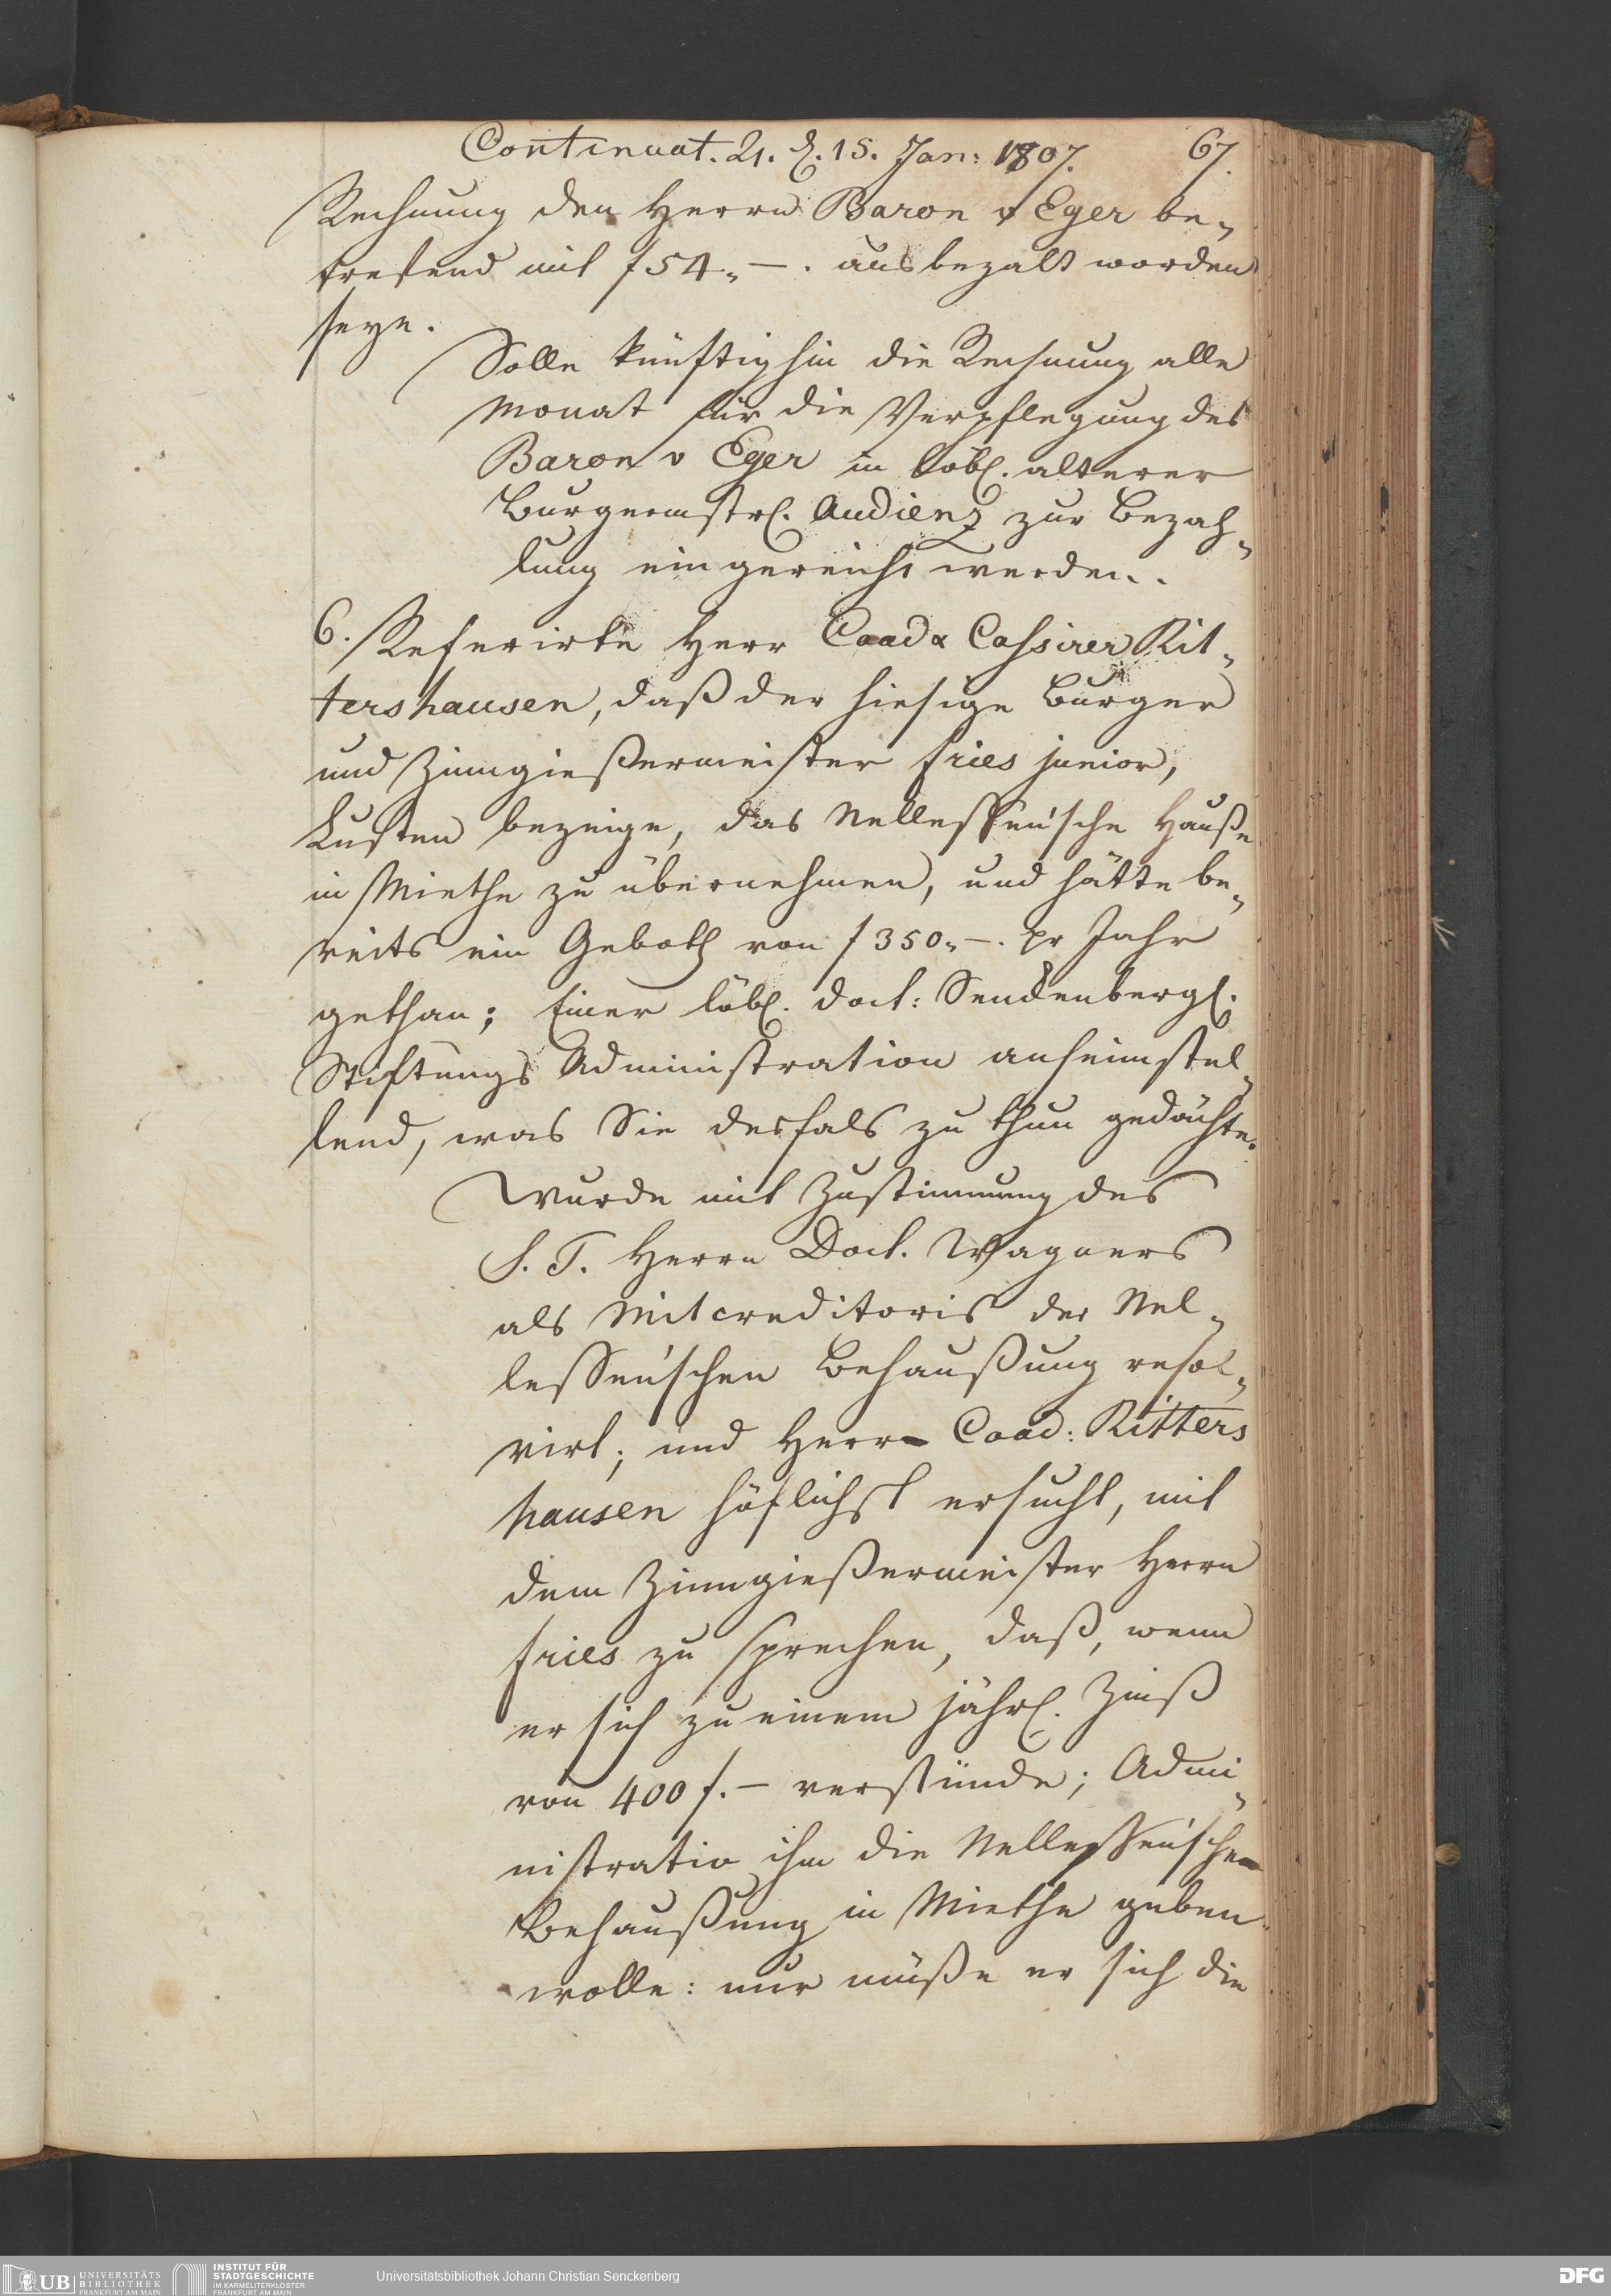 Continuat. 21. d. 15. Jan: 1807. 67.
Rechnung den Herrn Baron v Eger be„
trefend mit f 54„ —. ausbezalt worden
seye.
Solle künftighin die Rechnung alle
Monat für die Verpflegung des
Baron v Eger in Löbl. älterer
Burgermstrl. Audienz zur Bezah„
lung eingereicht werden.
6. Referirte Herr Coad & Cassirer Rit„
tershausen, daß der hiesige Burger
und Zinngießermeister Fries junior,
Lusten bezeige, das Nellessen'sche Hauße
in Miethe zu übernehmen, und hätte be„
reits ein Geboth von f 350„ —. pr Jahr
gethan; Einer löbl. Doct: Senckenbergl.
Stiftungs Administration anheimstel„
lend, was Sie desfals zu thun gedächte.
Wurde mit Zustimmung des
S. T. Herrn Doct. Wagners
als Mitcreditoris der Nel„
lessen'schen Behaußung resol„
virt; und Herr Coad: Ritters
hausen höflichst ersucht, mit
dem Zinngießermeister Herrn
Fries zu sprechen, daß, wenn
er sich zu einem jährl. Zinß
von 400 f. — verstünde; Admi„
nistratio ihm die Nellessen'sche
Behaußung in Miethe geben
wolle: nur müße er sich die
UB UNIVERSITÄTS
BIBLIOTHEK
FRANKFURT AM MAIN
INSTITUT FÜR
STADTGESCHICHTE
IM KARMELITERKLOSTER
FRANKFURT AM MAIN
Universitätsbibliothek Johann Christian Senckenberg
DFG